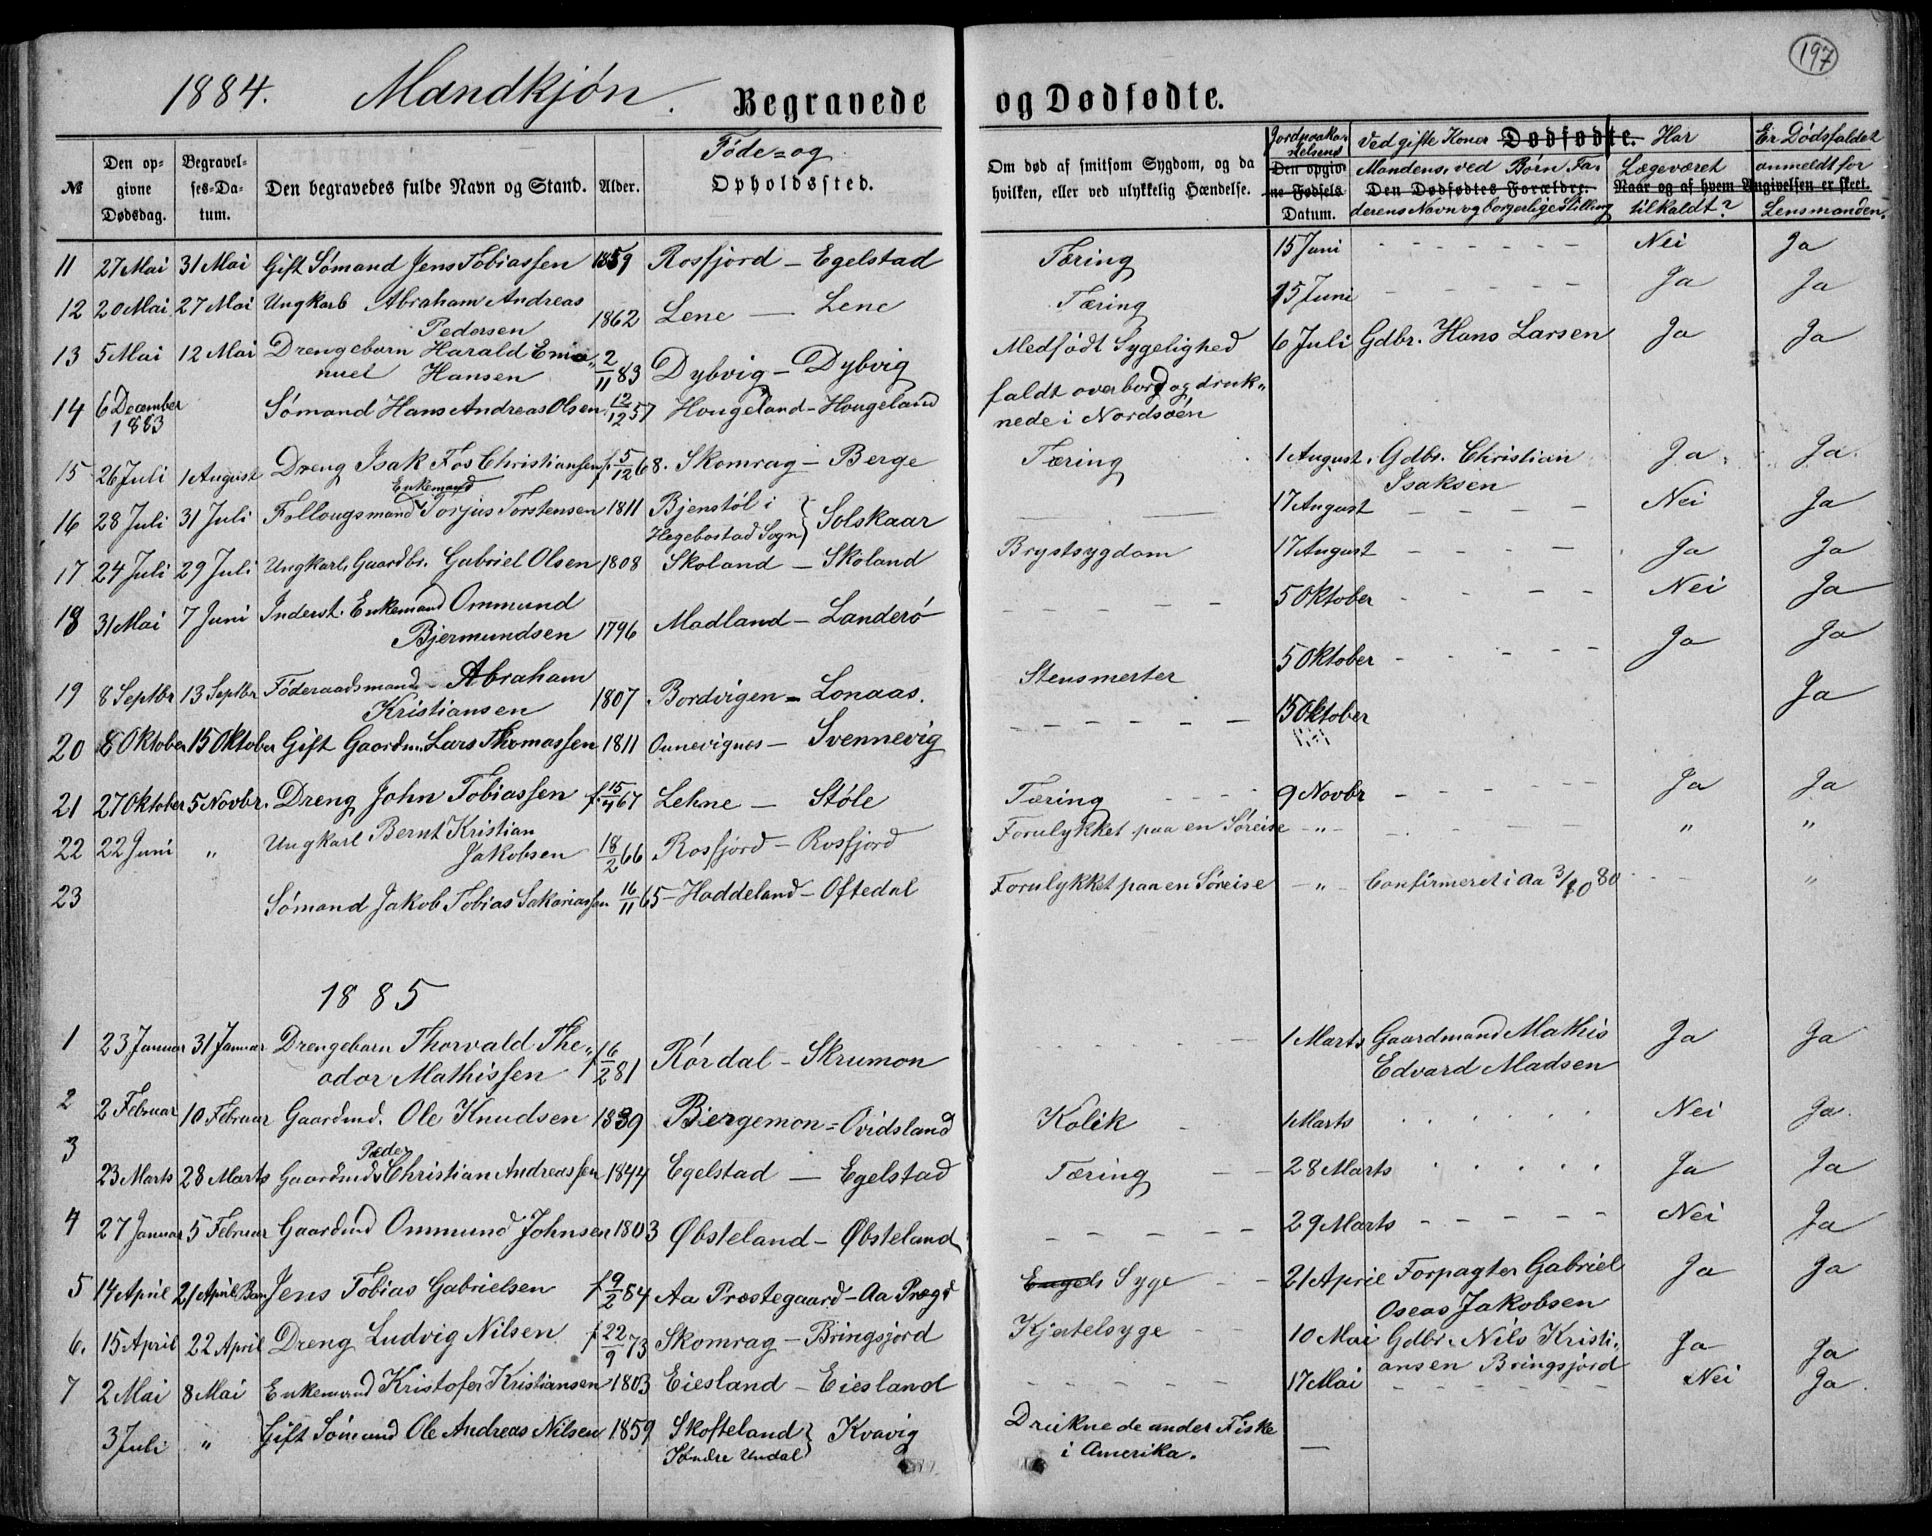 197
1884. Mandkjøn. Begravede og Dødfødte.
№ Den opgivne Dødsdag. Begravelses-Datum. Den begravedes fulde Navn og Stand. Alder. Føde- og Opholdssted. Om død af smitsom Sygdom, og da hvilken, eller ved ulykkelig Hændelse. Jordpaakastelsens Den opgivne Fødsels Datum. Ved gifte Koner Mandens, ved Børn Faderens Navn og borgerlige Stilling Dødfødte. Den Dødfødtes Forældre. Har Læge været tilkaldt? Naar og af hvem Angivelsen er skeet. Er Dødsfaldet anmeldt for Lensmanden.
11 27 Mai 31 Mai Gift Sømand Jens Tobiassen 1859 Rosfjord – Egelstad Tæring 15 Juni - - - - - - Nei Ja
12 20 Mai 27 Mai Ungkarl Abraham Andreas
Pedersen 1862 Lene — Lene Tæring 15 Juni - - - - - Ja Ja
13 5 Mai 12 Mai Drengebarn Harald Ema„
nuel Hansen 2/11 83 Dybvig – Dybvig Medfødt Sygelighed 6 Juli Gdbr. Hans Larsen Ja Ja
14 6 December
1883 Sømand Hans Andreas Olsen 12/12 57 Hougeland – Hougeland faldt overbord og druk„
nede i Nordsøén
15 26 Juli 1 August Dreng Isak Fos Christiansen f. 5/12 68. Skomrag – Berge Tæring 1 August. Gdbr. Christian
Isaksen Ja Ja.
16 28 Juli 31 Juli Follougsmand Enkemand Torjus Torstensen 1811 Bjenstøl i
Hegebostad Sogn } Solskaar — 17 August - - - - Nei Ja
17 24 Juli 29 Juli Ungkarl, Gaardbr. Gabriel Olsen 1808 Skoland – Skoland Brystsygdom 17 August - - - - Ja Ja
18 31 Mai 7 Juni Inderst. Enkemand Ommund
Bjermundsen 1796 Madland – Landerø - - - - - 5 Oktober - - - - Nei Ja
19 8 Septbr 13 Septbr Føderaadsmand – Abraham
Kristiansen 1807. Bordvigen – Lonaas. Stensmerter 5 Oktober - - - - Ja Ja
20 8 Oktober 15 Oktober Gift Gaardm. Lars Thomassen 1811 – Svennevig - - - - - 15 Oktober Ja
21 27 Oktober 5 Novbr. Dreng John Tobiassen f. 15/4 67 Lehne — Støle Tæring 9 Novbr - - - - - Ja Ja
22 22 Juni „ Ungkarl Bernt Kristian
Jakobsen 18/2 66 Rosfjord – Rosfjord Forulykket paa en Søreise – „ - - - - „ „
23 Sømand Jakob Tobias Sakariassen 16/11 65 – Haddeland – Oftedal Forulykket paa en Søreise – „ – Confirmeret i Aa 3/10 80 „
1885
1 23 Januar 31 Januar Drengebarn Thorvald The„
odor Mathissen f 6/2 81 Rørdal – Skrumon - - - - - 1 Marts Gaardmand Mathis
Edvard Madsen Ja Ja
2 2 Februar 10 Februar Gaardmd. Ole Knudsen 1839 Bergemon – Ovidsland Kolik 1 Marts . . . . . Nei Ja.
3 23 Marts 28 Marts Gaardmds Peder Christian Andreassen 1844 Egelstad — Egelstad Tæring 28 Marts . . . . . Ja Ja
4 27 Januar 5 Februar Gaardmd Ommund Johnsen 1803 Øbsteland – Øbsteland - - - - - 29 Marts - - - - - Nei Ja
5 14 April 21 April Barn Jens Tobias Gabrielsen f 9/2 84 Aa Præstegaard – Aa Prægd Engels Syge 21 April Forpagter Gabriel
Oseas Jakobsen Ja Ja
6. 15 April 22 April Dreng Ludvig Nilsen f. 22/9 73 Skomrag – Bringsjord Kjertelsyge 10 Mai Gdbr. Nils Kristi„
ansen Bringsjord Ja Ja
7 2 Mai 8 Mai Enkemand Kristofer Kristiansen 1803 Eiesland – Eiesland - - - - - 17 Mai - - - - - Nei Ja.
3 Juli „ Gift Sømand Ole Andreas Nilsen 1859 Skofteland
Søndre Undal } Kvavig Druknede under Fiske
i Amerika. —